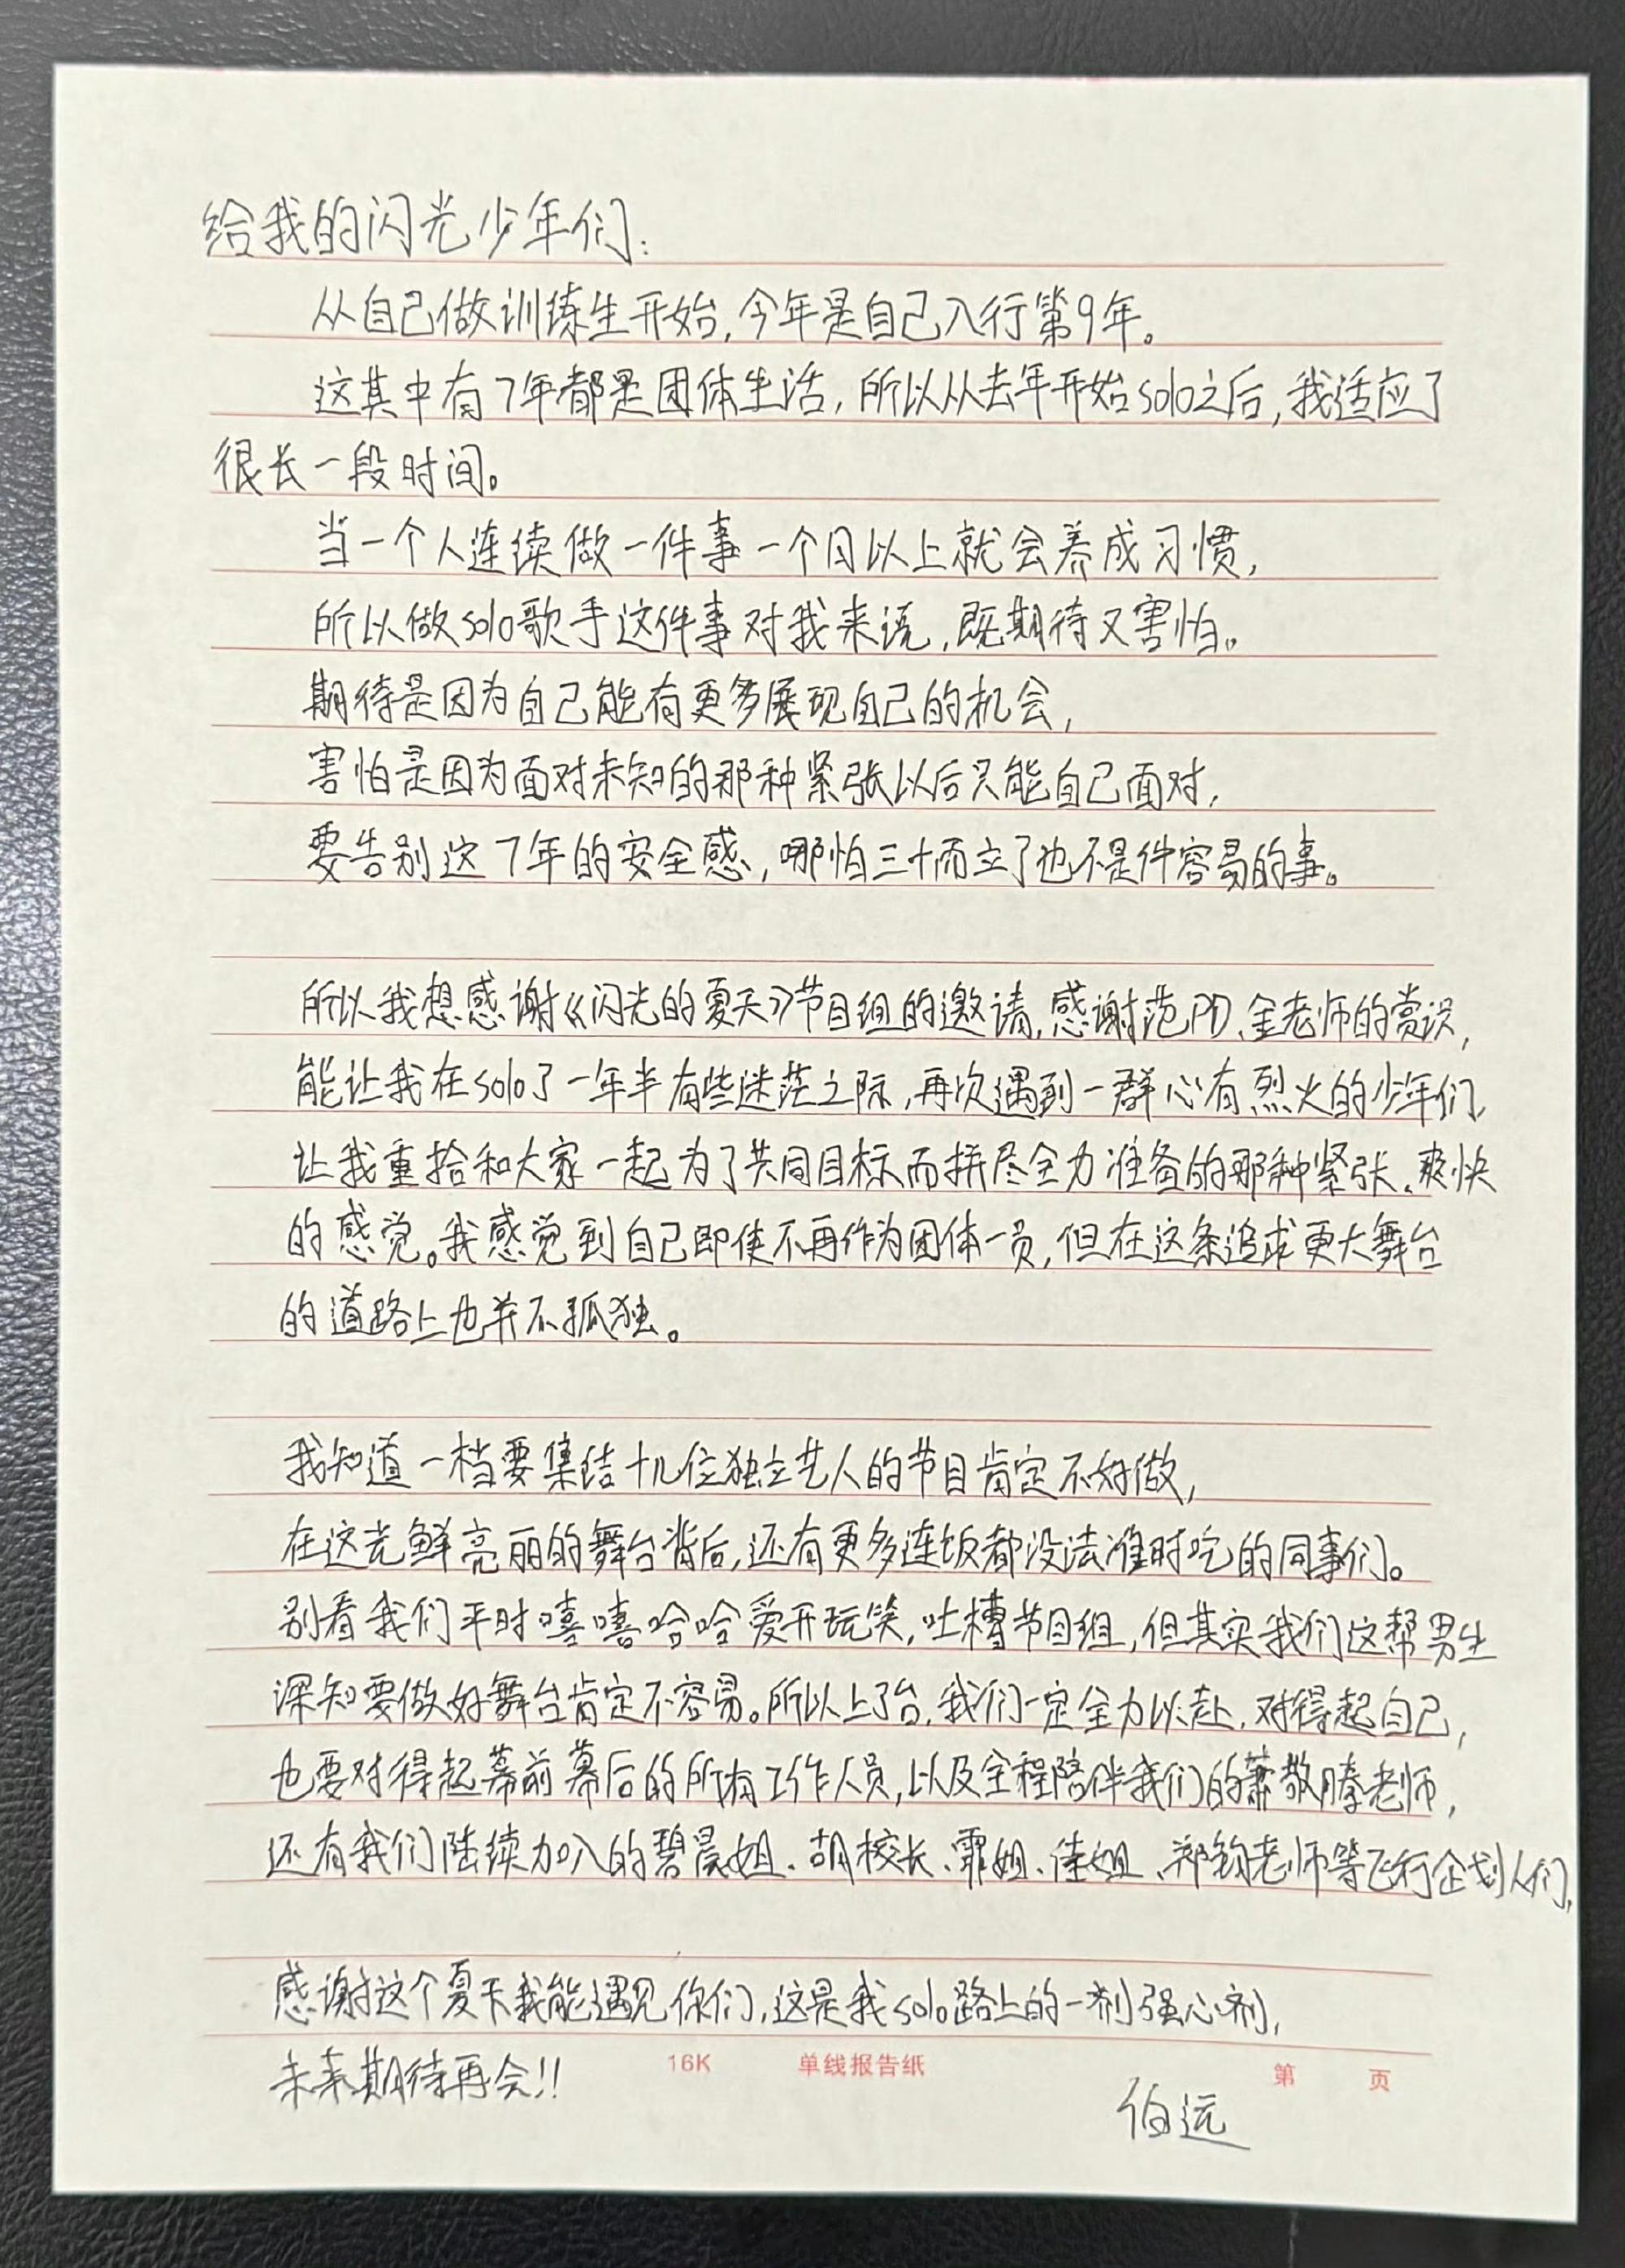 给我的闪光少年们：
从自己做训练生开始,今年是自己入行第9年。
这其中有7年都是团体生活,所以从去年开始solo之后,我适应了
很长一段时间。
当一个人连续做一件事一个月以上就会养成习惯,
所以做solo歌手这件事对我来说,既期待又害怕。
期待是因为自己能有更多展现自己的机会,
害怕是因为面对未知的那种紧张以后只能自己面对,
要告别这7年的安全感,哪怕三十而立了也不是件容易的事。
所以我想感谢《闪光的夏天》节目组的邀请,感谢范PD、金老师的赏识,
能让我在solo了一年半有些迷茫之际,再次遇到一群心有烈火的少年们,
让我重拾和大家一起为了共同目标而拼尽全力准备的那种紧张、爽快
的感觉。我感觉到自己即使不再作为团体一员,但在这条追求更大舞台
的道路上也并不孤独。
我知道一档要集结十几位独立艺人的节目肯定不好做,
在这光鲜亮丽的舞台背后,还有更多连饭都没法准时吃的同事们。
别看我们平时嘻嘻哈哈爱开玩笑,吐槽节目组,但其实我们这帮男生
深知要做好舞台肯定不容易。所以上了台,我们一定全力以赴,对得起自己,
也要对得起幕前幕后的所有工作人员,以及全程陪伴我们的萧敬腾老师,
还有我们陆续加入的碧晨姐、胡校长、霏姐、佳姐、郑钧老师等飞行企划人们,
感谢这个夏天我能遇见你们,这是我solo路上的一剂强心剂,
未来期待再会!!
16K 单线报告纸 第 页
伯远